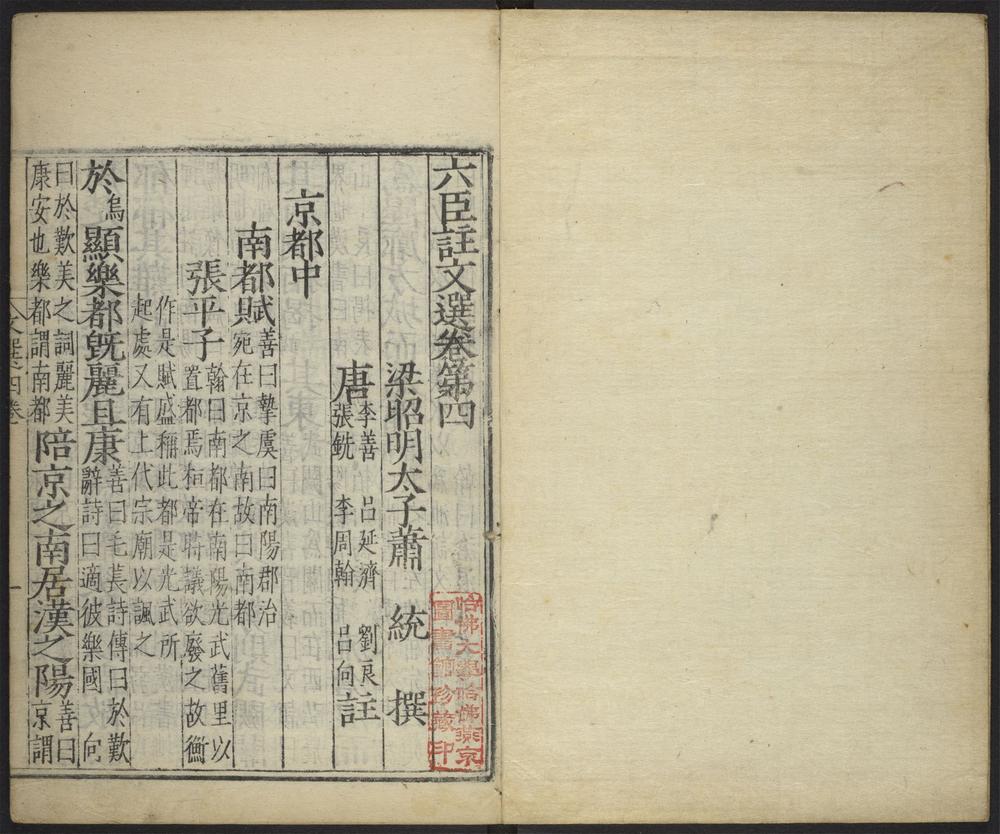 六臣註文選卷第四
梁昭明太子蕭 統 撰
唐 李善 呂延濟 劉良 張銑 李周翰 呂向 註
京都中
南都賦 善曰摯虞曰南陽郡治宛在京之南故曰南都
張平子 翰曰南都在南陽光武舊里以置都焉桓帝時議欲廢之故衡
作是賦盛稱此都是光武所起處又有上代宗廟以諷之
於烏顯樂都旣麗且康 善曰毛萇詩傳曰於歎辭詩曰適彼樂國 向
曰於歎美之詞麗美康安也樂都謂南都 陪京之南居漢之陽 善曰京謂
文選四卷 一
哈佛大學哈佛燕京
圖書館珍藏印